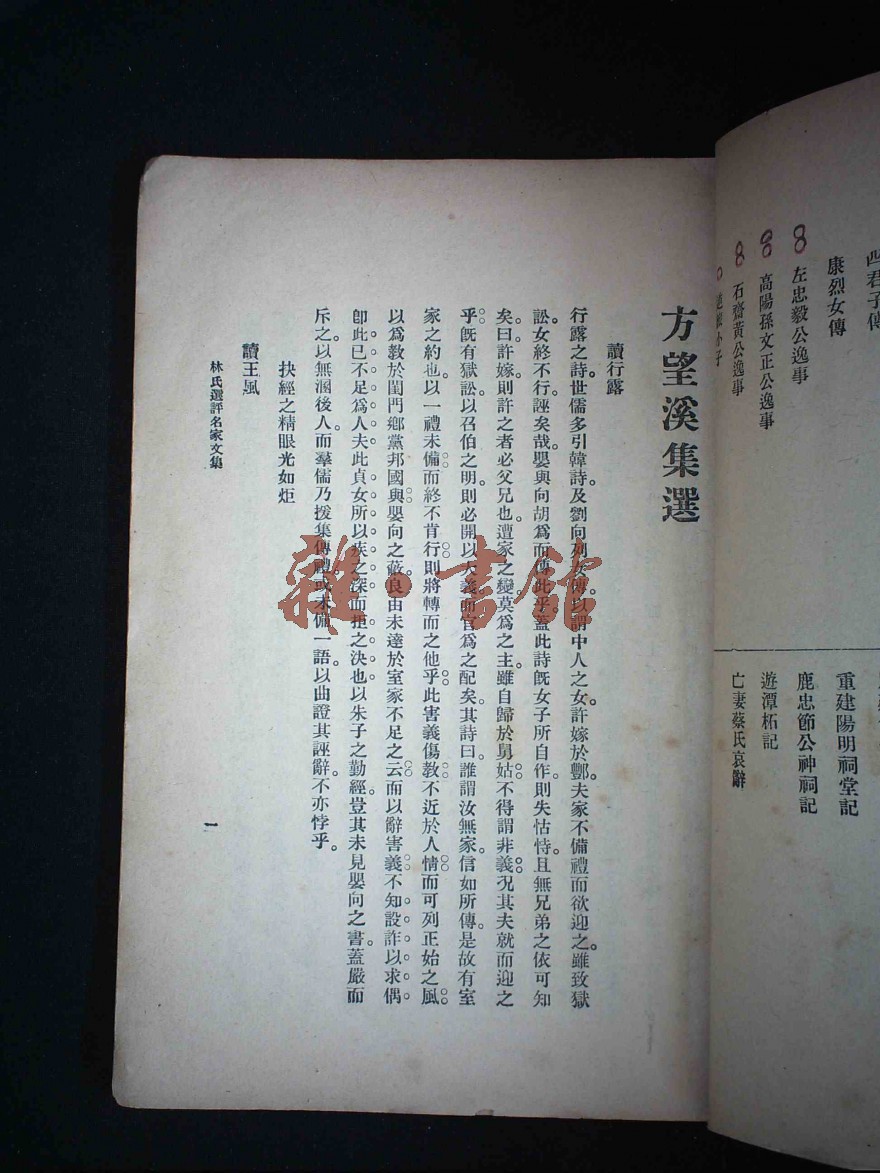 四君子傳
康烈女傳
左忠毅公逸事
高陽孫文正公逸事
石齋黃公逸事
重建陽明祠堂記
鹿忠節公神祠記
遊潭柘記
亡妻蔡氏哀辭
方望溪集選
讀行露
行露之詩。世儒多引韓詩。及劉向列女傳。以謂中人之女。許嫁於酆。夫家不備禮而欲迎之。雖致獄
訟。女終不行。誣矣哉。嬰與向胡爲而傳此乎。蓋此詩既女子所自作。則失怙恃。且無兄弟之依可知
矣。曰許嫁。則許之者必父兄也。遭家之變。莫爲之主。雖自歸於舅姑。不得謂非義。况其夫就而迎之
乎。既有獄訟。以召伯之明。則必開以大義。而官爲之配矣。其詩曰。誰謂汝無家。信如所傳。是故有室
家之約也。以一禮未備。而終不肯行。則將轉而之他乎。此害義傷教。不近於人情。而可列正始之風。
以爲教於閨門鄉黨邦國與。嬰向之蔽。良由未達於室家不足之云。而以辭害義。不知設詐以求偶。
卽此已不足爲人夫。此貞女所以疾之深而拒之決也。以朱子之勤經。豈其未見嬰向之書。蓋嚴而
斥之。以無溷後人。而羣儒乃援集傳禮或未備一語。以曲證其誣辭。不亦悖乎。
抉經之精眼光如炬
讀王風
林氏選評名家文集
一
雜·書館